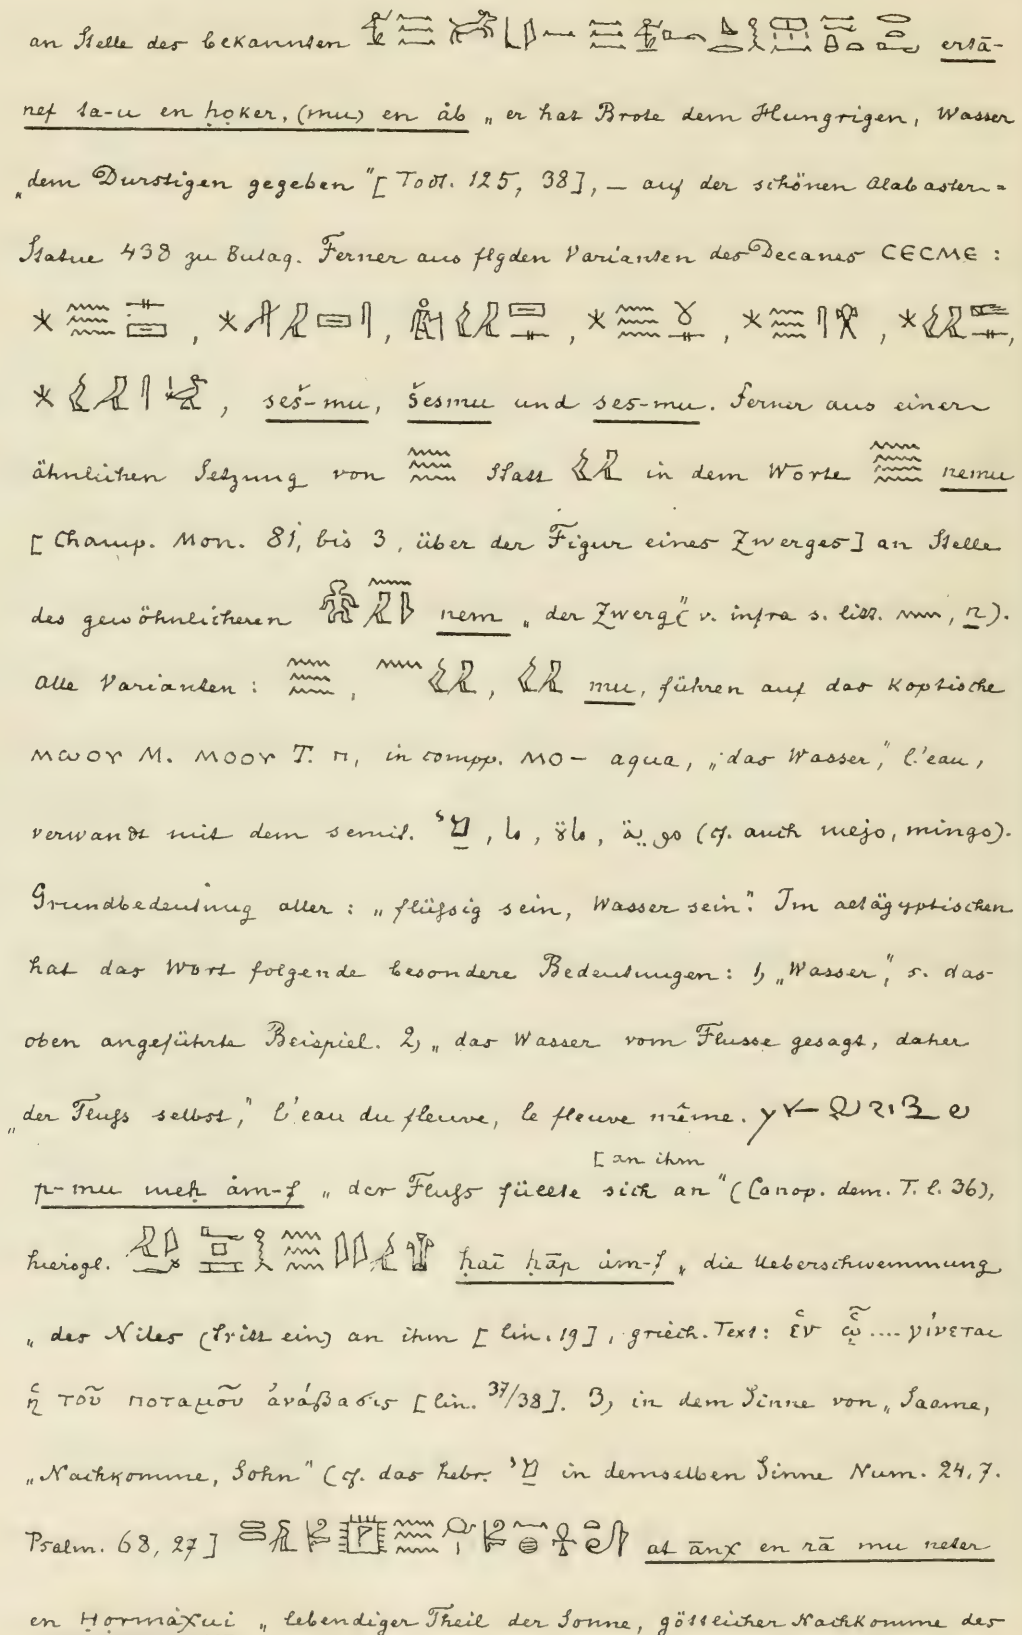 an Stelle des bekannten ertā-
nef ta-u en ḥoḳer, (mu) en áb „er hat Brote dem Hungrigen, Wasser
„dem Durstigen gegeben" [Todt. 125, 38], — auf der schönen Alabaster=
Statue 438 zu Bulaq. Ferner aus flgden Varianten des Decanes CECME:
, , , , , ,
, seš-mu, šesmu und ses-mu. Ferner aus einer
ähnlichen Setzung von statt in dem Worte nemu
[Champ. Mon. 81, bis 3, über der Figur eines Zwerges] an Stelle
des gewöhnlicheren nem „der Zwerg" (v. infra s. litt. n).
Alle Varianten: , , mu, führen auf das Koptische
ⲙⲱⲟⲩ M. ⲙⲟⲟⲩ T. ⲡ, in compp. ⲙⲟ- aqua, „das Wasser", l'eau,
verwandt mit dem semit. (cf. auch mejo, mingo).
Grundbedeutung aller: „flüssig sein, Wasser sein". Im altägyptischen
hat das Wort folgende besondere Bedeutungen: 1, „Wasser", s. das
oben angeführte Beispiel. 2, „das Wasser vom Flusse gesagt, daher
„der Flufs selbst," l'eau du fleuve, le fleuve même.
[an ihm
p-mu meḥ ám-f „der Flufs füllte sich an" (Canop. dem. T. l. 36),
hierogl. ḥaī ḥāp ám-f „die Ueberschwemmung
„des Niles (tritt ein) an ihm [lin. 19], griech. Text: ἐν ᾧ .... γίνεται
ἡ τοῦ ποταμοῦ ἀνάβασις [lin. 37/38]. 3, in dem Sinne von „Saame,
„Nachkomme, Sohn" (cf. das hebr. in demselben Sinne Num. 24,7.
Psalm. 68, 27] at ānχ en rā mu neter
en Ḥormáχui „lebendiger Theil der Sonne, göttlicher Nachkomme des